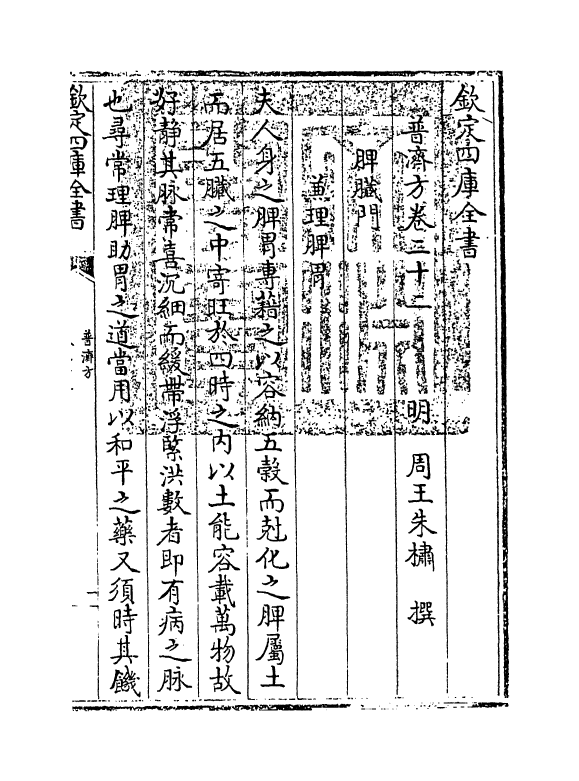 欽定四庫全書
普濟方卷二十二　明　周王朱橚　撰
脾臟門
兼理脾胃
夫人身之脾胃專藉之以容納五穀而尅化之脾屬土
而居五臟之中寄旺於四時之內以土能容載萬物故
好静其脉常喜沉細而緩帶浮緊洪數者即有病之脉
也尋常理脾助胃之道當用以和平之藥又須時其饑
欽定四庫全書
普濟方